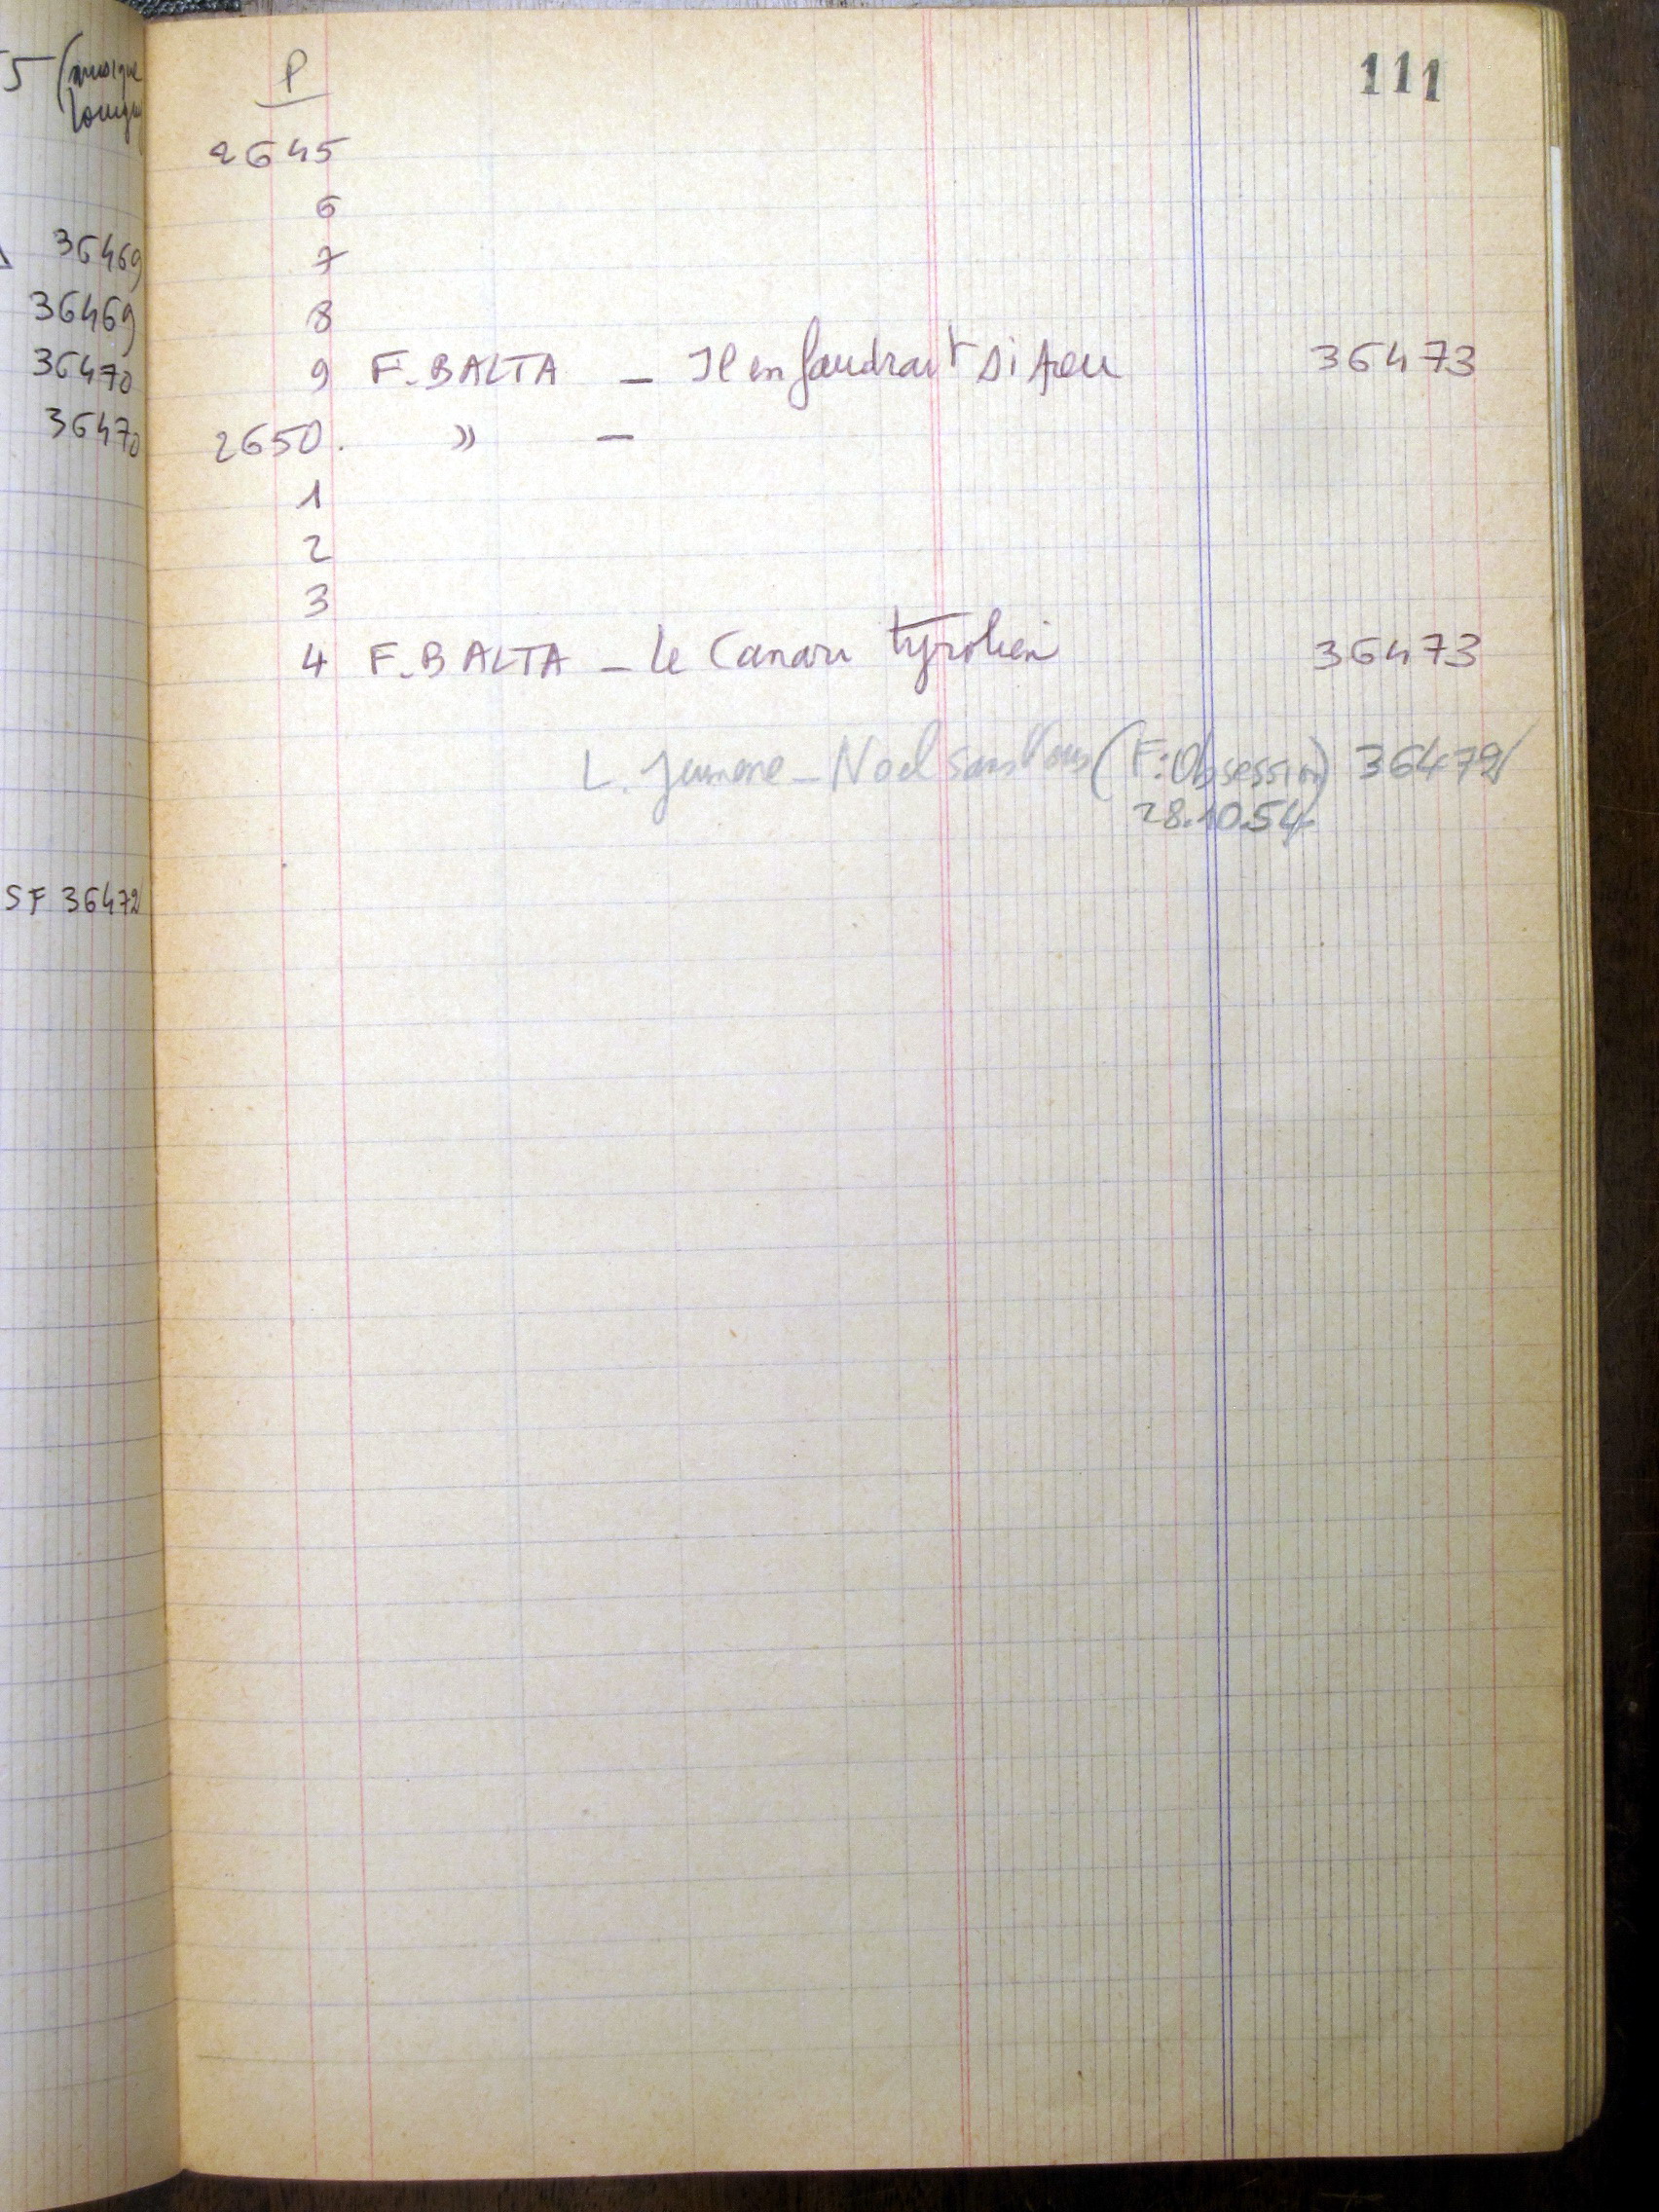 5 (musique
36469
36469
36470
36470
SF 36472
111
P
2645
6
7
8
9 F. BALTA — Il en faudrait si peu 36473
2650. » —
1
2
3
4 F. BALTA — Le Canari tyrolien 36473
L. Jumene — Noel sans Vous (F: Obsession) 36472
28.10.54